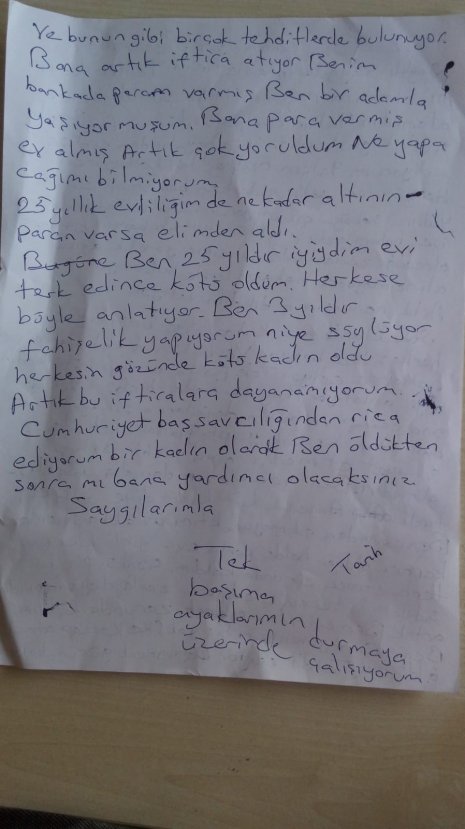 Ve bunun gibi birçok tehditlerde bulunuyor.
Bana artık iftira atıyor Benim
bankada param varmış Ben bir adamla
yaşıyor muşum. Bana para vermiş
ev almış Artık çok yoruldum Ne yapa
cağımı bilmiyorum
25 yıllık evliliğim de ne kadar altının
paran varsa elimden aldı.
Bugüne Ben 25 yıldır iyiydim evi
terk edince kötü oldum. Herkese
böyle anlatıyor. Ben 3 yıldır
fahişelik yapıyorum niye söylüyor
herkesin gözünde kötü kadın oldu
Artık bu iftiralara dayanamıyorum.
Cumhuriyet başsavcılığından rica
ediyorum bir kadın olarak Ben öldükten
sonra mı bana yardımcı olacaksınız
Saygılarımla
Tek Tarih
başıma
ayaklarımın
üzerinde durmaya
çalışıyorum.